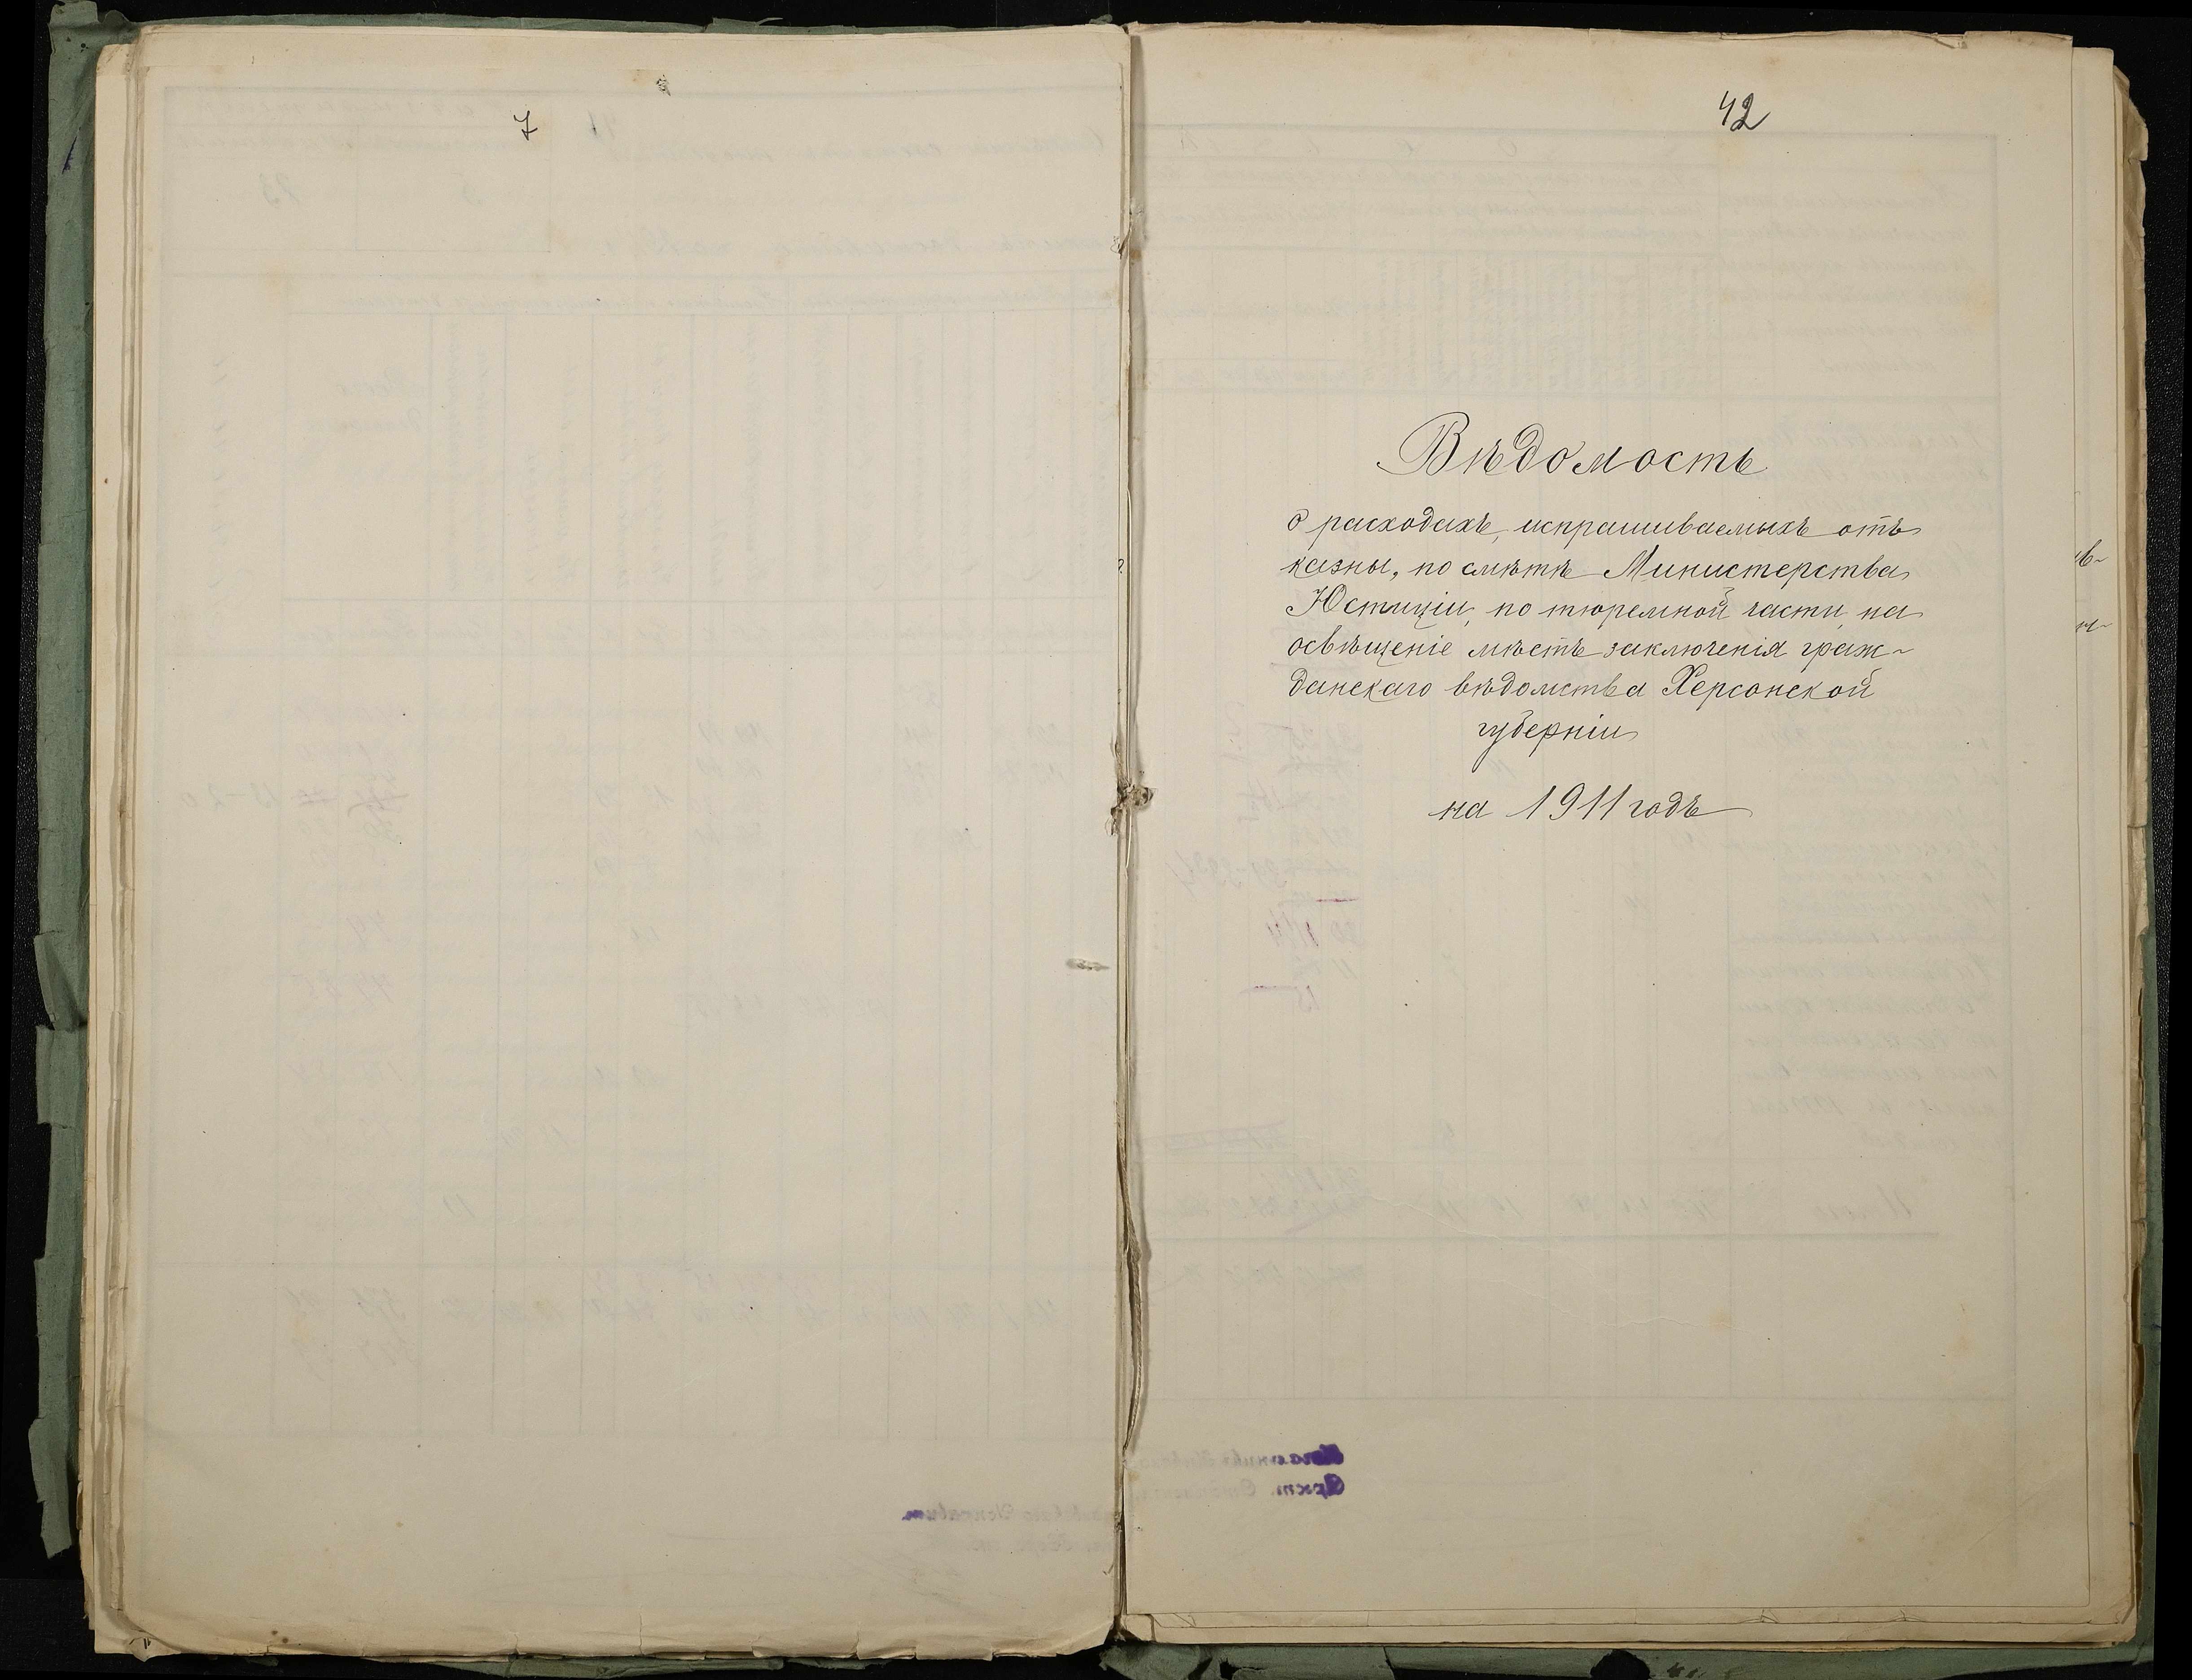 7
42
Вѣдомость
о расходахъ, испрашиваемыхъ отъ
казны, по смѣтѣ Министерства
Юстиціи, по тюремной части, на
освѣщеніе мѣстъ заключенія граж-
данскаго вѣдомства Херсонской
губерніи
на 1911 годъ